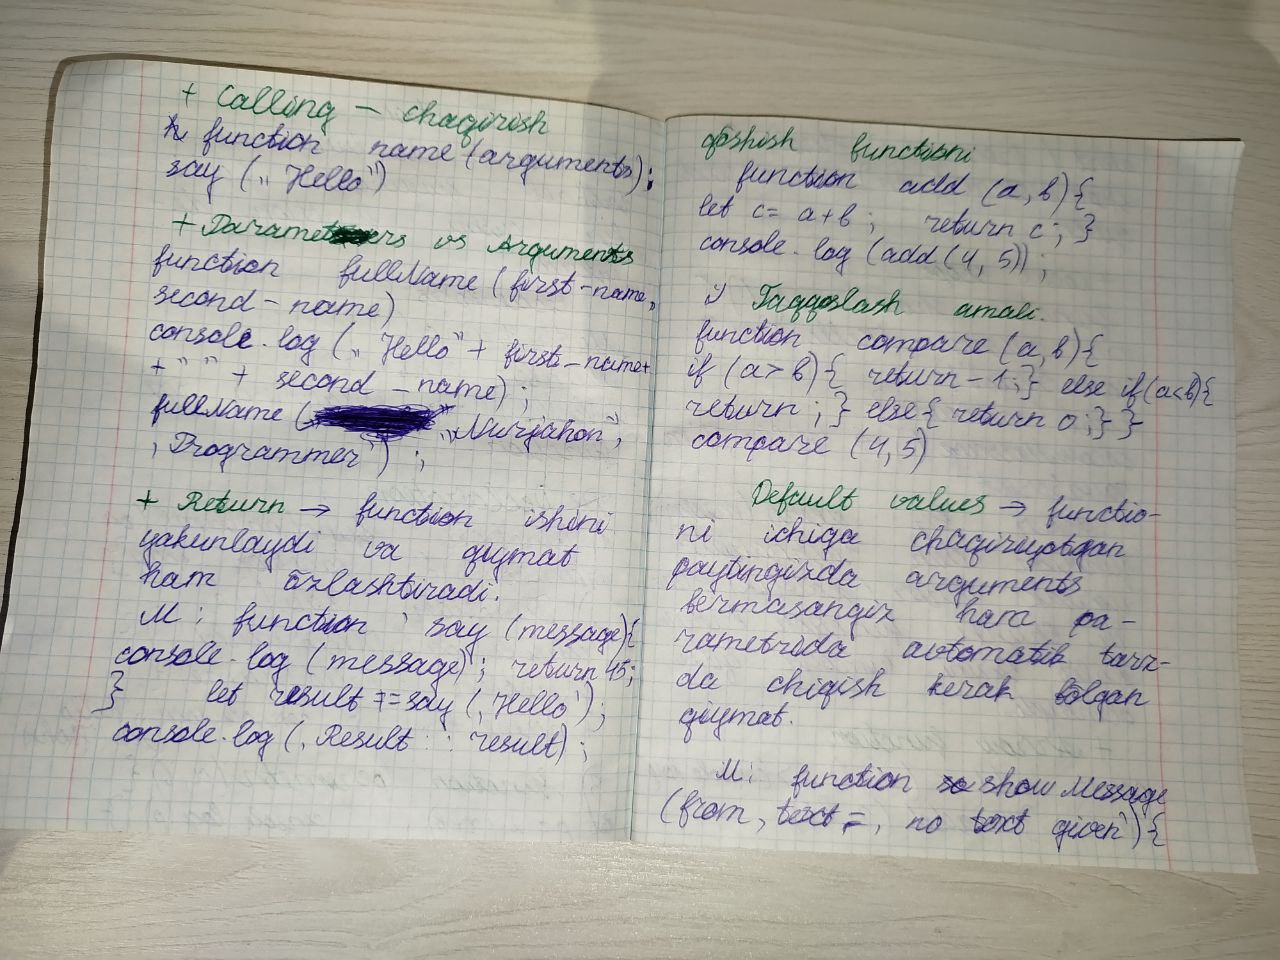 + Calling – chaqirish
function name (arguments);
say („Hello")
+ Parameters vs Arguments
function fullName (first-name,
second-name)
console.log („Hello" + first-name+
+ " " + second-name);
fullName („Nurjahon",
'Programmer');
+ Return → function ishini
yakunlaydi va qiymat
ham õzlashtiradi.
M: function say (message){
console.log (message); return 45;
} let result == say (,Hello');
console.log (,Result : ' result);
qõshish functioni
function add (a, b){
let c= a+b; return c; }
console.log (add(4, 5));
Taqqoslash amali.
function compare (a, b){
if (a > b) { return -1;} else if (a<b){
return ; } else { return 0;} }
compare (4, 5)
Default values → functio-
ni ichiga chaqirayotgan
paytingizda arguments
bermasangiz ham pa-
rametrida avtomatik tarz-
da chiqish kerak bõlgan
qiymat.
M: function showMessage
(from, text =, no text given'){